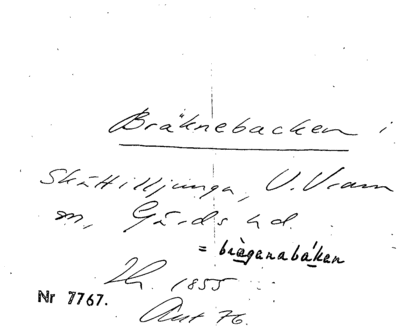 Bräknebacken i
Skättilljunga, V. Vram
sn, Gärds hd.
= brägenabákan
Lh. 1855
Nr 7767.
Ant 76.